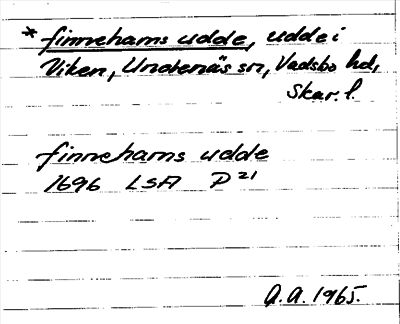 * finnehams udde, udde i
Viken, Undenäs sn, Vadsbo hd,
Skar. l.
finnehams udde
1696 LSA P 21
A.A. 1965.